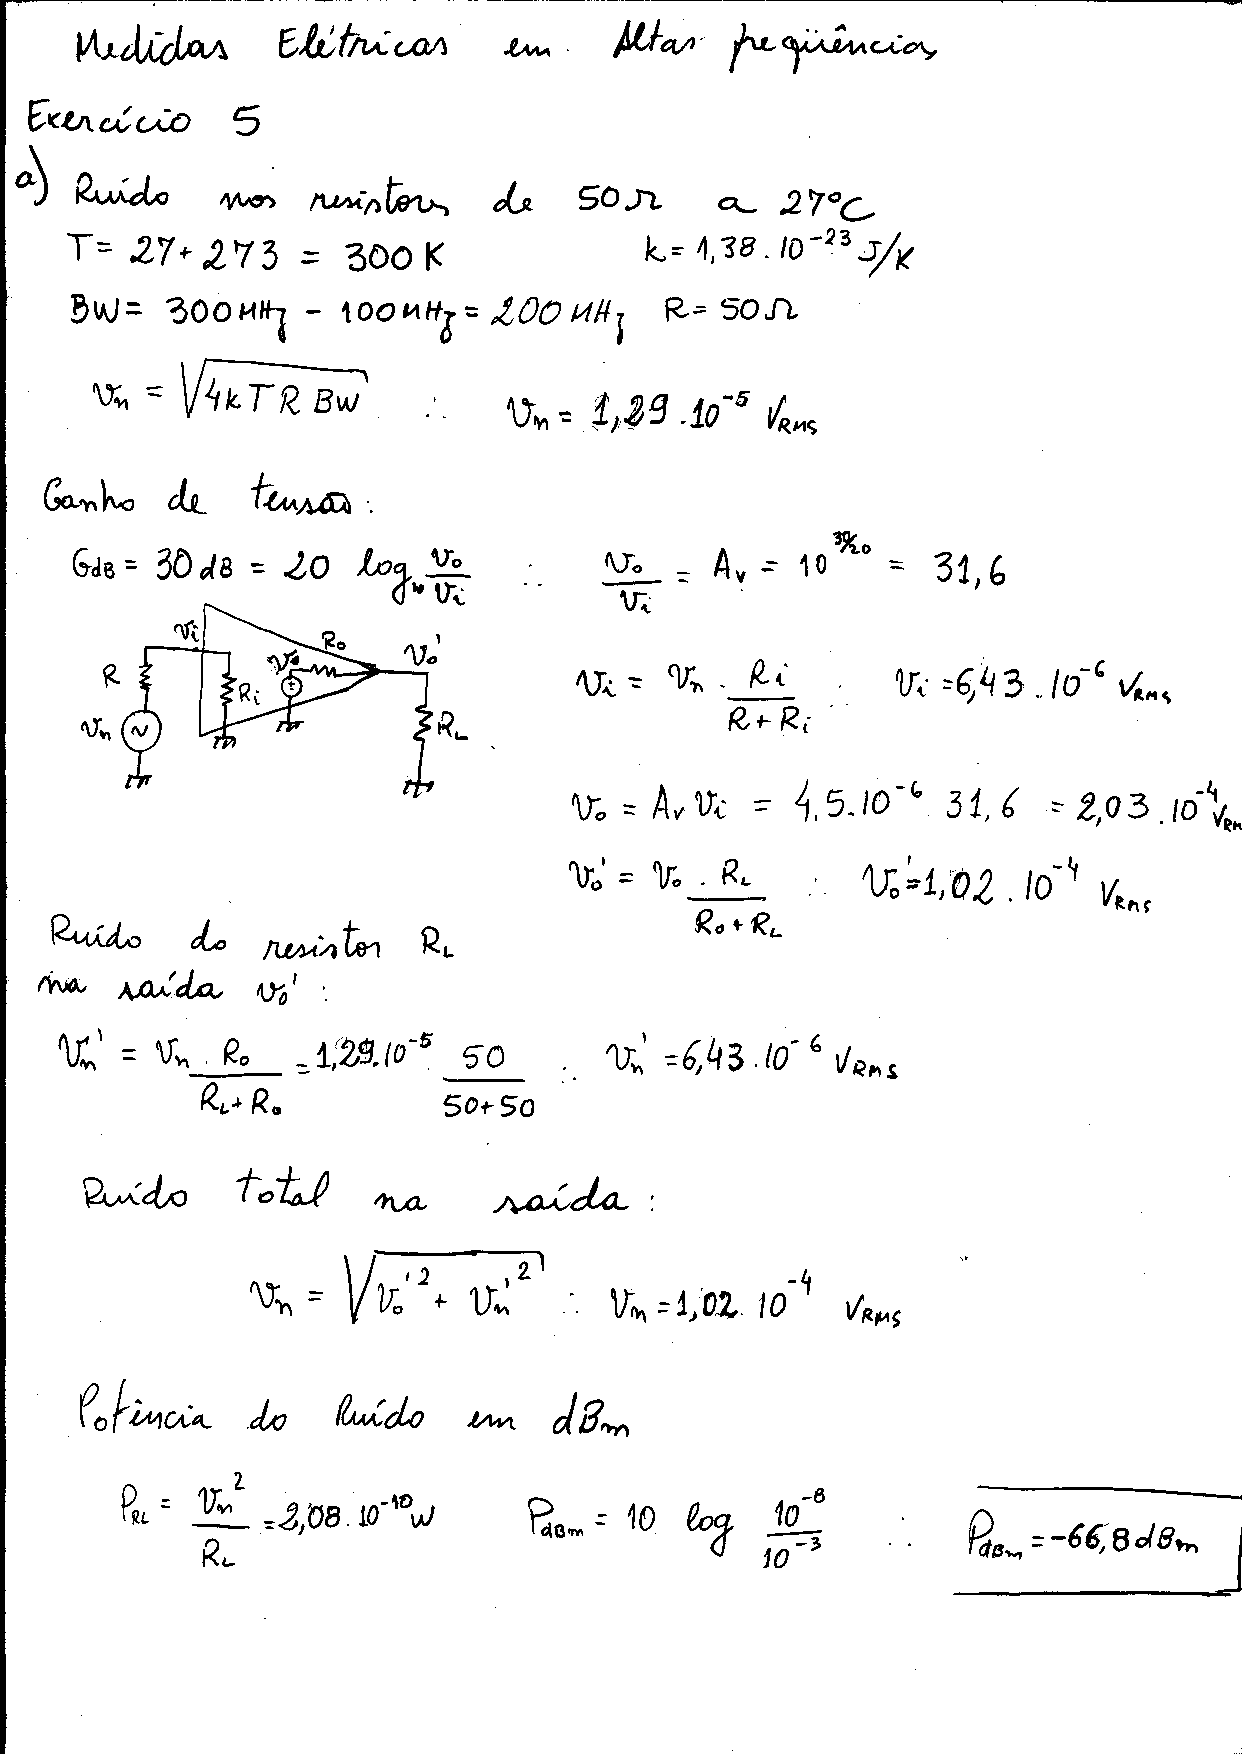 Medidas Elétricas em Altas freqüências
Exercício 5
a) Ruído nos resistores de 50Ω a 27°C
T = 27 + 273 = 300 K k = 1,38 . 10^-23 J/K
BW = 300 MHz - 100 MHz = 200 MHz R = 50Ω
vn = √(4kTR BW) ∴ vn = 1,29 . 10^-5 VRMS
Ganho de tensão :
GdB = 30 dB = 20 log10 vo/vi ∴ vo/vi = Av = 10^30/20 = 31,6
R vn vi Ri vo Ro vo' RL
vi = vn . Ri/(R + Ri) ∴ vi = 6,43 . 10^-6 VRMS
vo = Av vi = 4,5 . 10^-6 31,6 = 2,03 . 10^-4 VRM
vo' = vo . RL/(Ro + RL) ∴ vo' = 1,02 . 10^-4 VRMS
Ruído do resistor RL
na saída vo' :
vn' = vn . Ro/(RL + Ro) = 1,29 . 10^-5 50/(50 + 50) ∴ vn' = 6,43 . 10^-6 VRMS
Ruído total na saída :
vn = √(vo'^2 + vn'^2) ∴ vn = 1,02 . 10^-4 VRMS
Potência do Ruído em dBm
PRL = vn^2/RL = 2,08 . 10^-10 W PdBm = 10 log 10^-8/10^-3 ∴ PdBm = -66,8 dBm